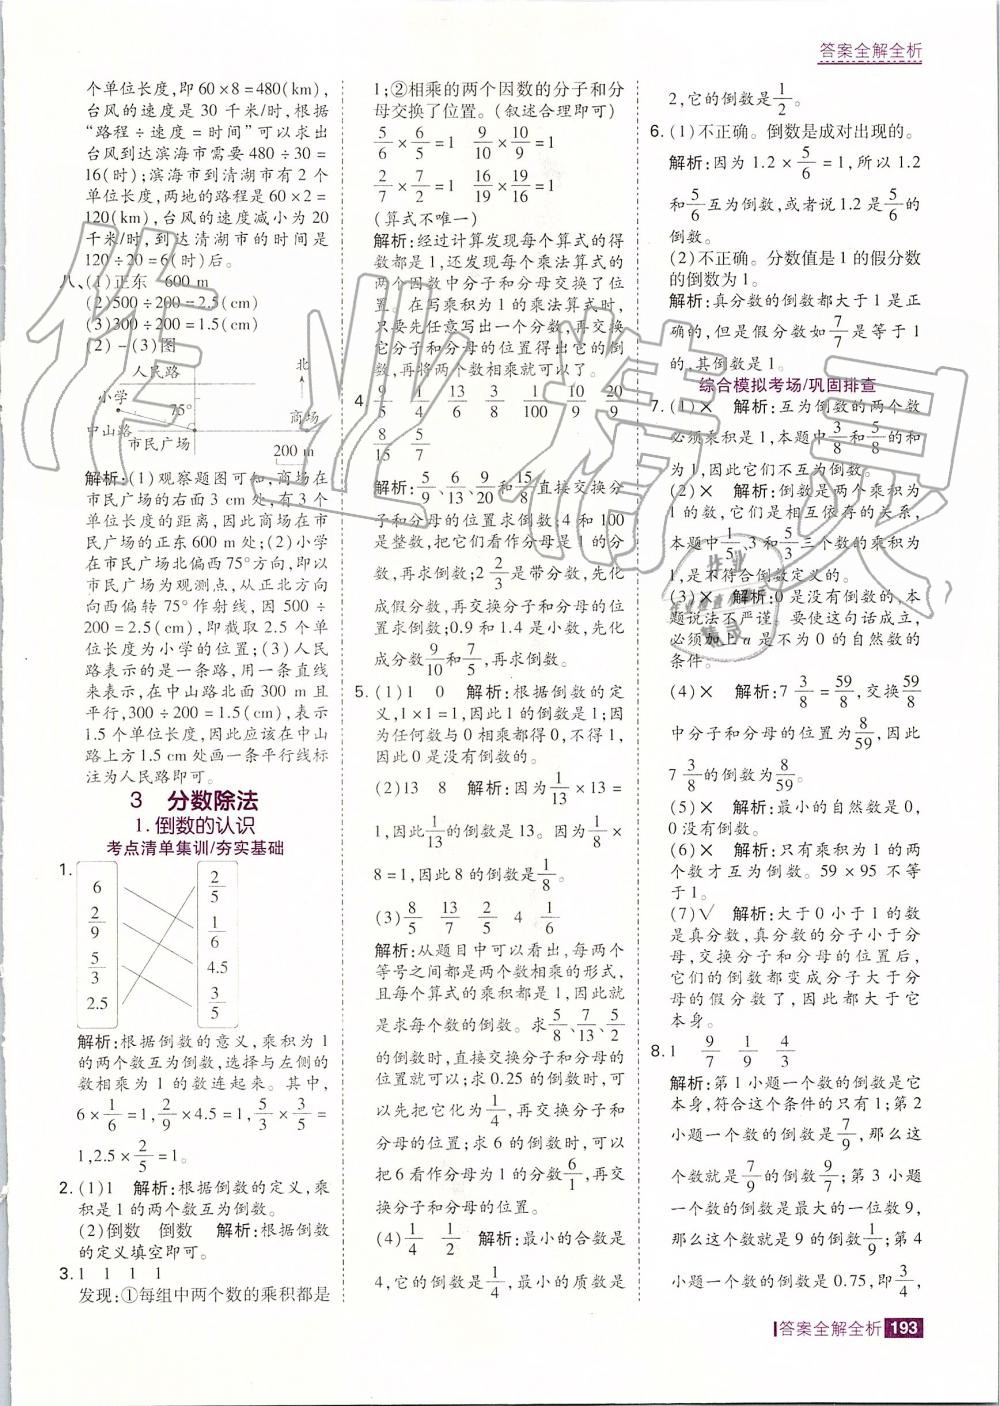 答案全解全析
个单位长度,即 60×8=480(km),
台风的速度是 30 千米/时,根据
“路程÷速度=时间”可以求出
台风到达滨海市需要 480÷30=
16(时);滨海市到清湖市有 2 个
单位长度,两地的路程是 60×2=
120(km),台风的速度减小为 20
千米/时,到达清湖市的时间是
120÷20=6(时)后。
八、(1)正东 600 m
(2)500÷200=2.5(cm)
(3)300÷200=1.5(cm)
(2)-(3)图
人民路
北
小学
75°
商场
中山路
市民广场
200 m
解析:(1)观察题图可知,商场在
市民广场的右面 3 cm 处,有 3 个
单位长度的距离,因此商场在市
民广场的正东 600 m 处;(2)小学
在市民广场北偏西 75°方向,即以
市民广场为观测点,从正北方向
向西偏转 75°作射线,因 500÷
200=2.5(cm),即截取 2.5 个单
位长度为小学的位置;(3)人民
路表示的是一条路,用一条直线
来表示,在中山路北面 300 m 且
平行,300÷200=1.5(cm),表示
1.5 个单位长度,因此应该在中山
路上方 1.5 cm 处画一条平行线标
注为人民路即可。
3 分数除法
1.倒数的认识
考点清单集训/夯实基础
1.
6 2/5
2/9 1/6
5/3 4.5
2.5 3/5
解析:根据倒数的意义,乘积为 1
的两个数互为倒数,选择与左侧的
数相乘为 1 的数连起来。其中,
6×1/6=1,2/9×4.5=1,5/3×3/5=
1,2.5×2/5=1。
2.(1)1 解析:根据倒数的定义,乘
积是 1 的两个数互为倒数。
(2)倒数 倒数 解析:根据倒数
的定义填空即可。
3.1 1 1 1
发现:①每组中两个数的乘积都是
1;②相乘的两个因数的分子和分
母交换了位置。(叙述合理即可)
5/6×6/5=1 9/10×10/9=1
2/7×7/2=1 16/19×19/16=1
(算式不唯一)
解析:经过计算发现每个算式的得
数都是 1,还发现每个乘法算式的
两个因数中分子和分母交换了位
置。在写乘积为 1 的乘法算式时,
只要先任意写出一个分数,再交换
它分子和分母的位置得出它的倒
数,再将两个数相乘就可以了。
4.9/5 1/4 13/6 3/8 1/100 10/9 20/9
8/15 5/7
解析:5/9、6/13、9/20和15/8直接交换分
子和分母的位置求倒数;4 和 100
是整数,把它们看作分母是 1 的分
数,再求倒数;2 2/3是带分数,先化
成假分数,再交换分子和分母的位
置求倒数;0.9 和 1.4 是小数,先化
成分数9/10和7/5,再求倒数。
5.(1)1 0 解析:根据倒数的定
义,1×1=1,因此 1 的倒数是 1;因
为任何数与 0 相乘都得 0,不得 1,
因此 0 是没有倒数的。
(2)13 8 解析:因为1/13×13=
1,因此1/13的倒数是 13。因为1/8×
8=1,因此 8 的倒数是1/8。
(3)8/5 13/7 2/5 4 1/6
解析:从题目中可以看出,每两个
等号之间都是两个数相乘的形式,
且每个算式的乘积都是 1,因此就
是求每个数的倒数。求5/8、7/13、5/2
的倒数时,直接交换分子和分母的
位置就可以;求 0.25 的倒数时,可
以先把它化为1/4,再交换分子和
分母的位置;求 6 的倒数时,可以
把 6 看作分母为 1 的分数6/1,再交
换分子和分母的位置。
(4)1/4 1/2 解析:最小的合数是
4,它的倒数是1/4,最小的质数是
2,它的倒数是1/2。
6.(1)不正确。倒数是成对出现的。
解析:因为 1.2×5/6=1,所以 1.2
和5/6互为倒数,或者说 1.2 是5/6的
倒数。
(2)不正确。分数值是 1 的假分数
的倒数为 1。
解析:真分数的倒数都大于 1 是正
确的,但是假分数如7/7是等于 1
的,其倒数是 1。
综合模拟考场/巩固排查
7.(1)× 解析:互为倒数的两个数
必须乘积是 1,本题中3/8和5/8的和
为 1,因此它们不互为倒数。
(2)× 解析:倒数是两个乘积为
1 的数,它们是相互依存的关系,
本题中1/5、3 和5/3三个数的乘积为
1,是不符合倒数定义的。
(3)× 解析:0 是没有倒数的,本
题说法不严谨。要使这句话成立,
必须加上 a 是不为 0 的自然数的
条件。
(4)× 解析:7 3/8=59/8,交换59/8
中分子和分母的位置为8/59,因此
7 3/8的倒数为8/59。
(5)× 解析:最小的自然数是 0,
0 没有倒数。
(6)× 解析:只有乘积为 1 的两
个数才互为倒数。59×95 不等
于 1。
(7)√ 解析:大于 0 小于 1 的数
是真分数,真分数的分子小于分
母,交换分子和分母的位置后,
它们的倒数都变成分子大于分
母的假分数了,因此都大于它
本身。
8.1 9/7 1/9 4/3
解析:第 1 小题一个数的倒数是它
本身,符合这个条件的只有 1;第 2
小题一个数的倒数是7/9,那么这
个数就是7/9的倒数9/7;第 3 小题
一个数的倒数是最大的一位数 9,
那么这个数就是 9 的倒数1/9;第 4
小题一个数的倒数是 0.75,即3/4,
答案全解全析 193
作业精灵